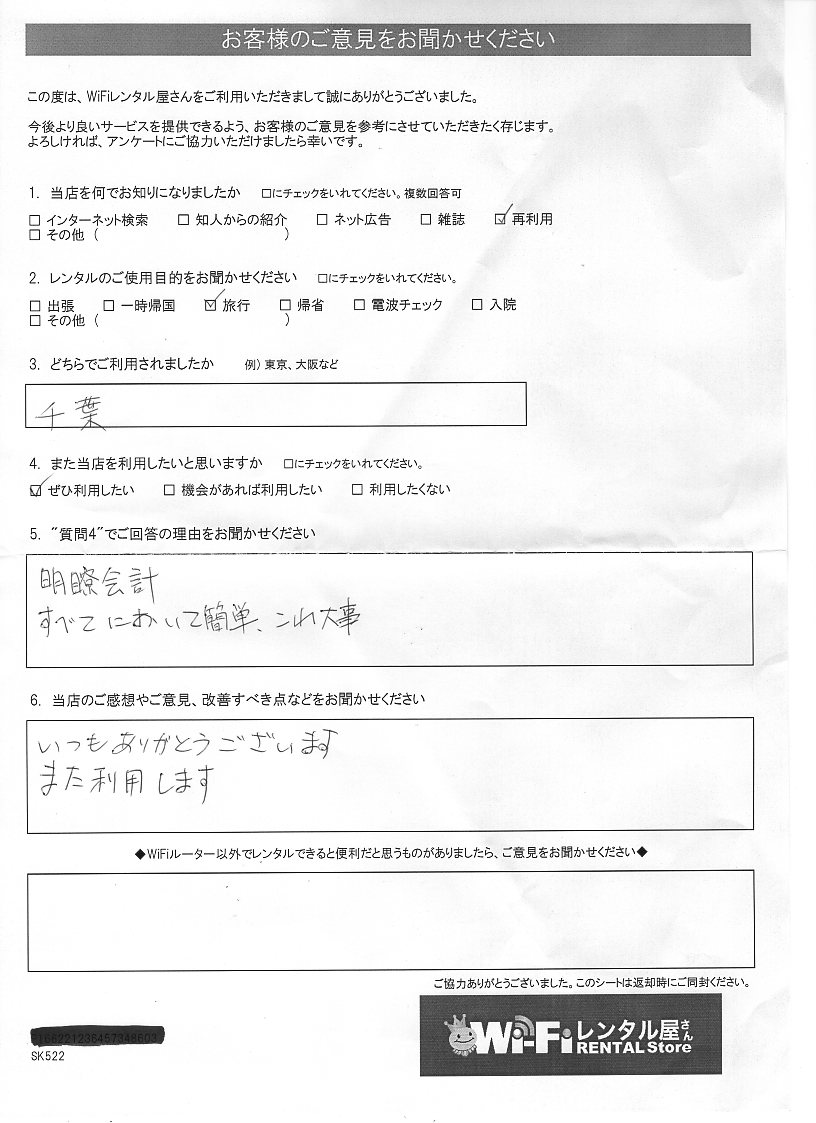 お客様のご意見をお聞かせください
この度は、WiFiレンタル屋さんをご利用いただきまして誠にありがとうございました。
今後より良いサービスを提供できるよう、お客様のご意見を参考にさせていただきたく存じます。
よろしければ、アンケートにご協力いただけましたら幸いです。
1. 当店を何でお知りになりましたか □にチェックをいれてください。複数回答可
□ インターネット検索 □ 知人からの紹介 □ ネット広告 □ 雑誌 ☑ 再利用
□ その他 ( )
2. レンタルのご使用目的をお聞かせください □にチェックをいれてください。
□ 出張 □ 一時帰国 ☑ 旅行 □ 帰省 □ 電波チェック □ 入院
□ その他 ( )
3. どちらでご利用されましたか 例)東京、大阪など
千葉
4. また当店を利用したいと思いますか □にチェックをいれてください。
☑ ぜひ利用したい □ 機会があれば利用したい □ 利用したくない
5. "質問4"でご回答の理由をお聞かせください
明瞭会計
すべてにおいて簡単、これ大事
6. 当店のご感想やご意見、改善すべき点などをお聞かせください
いつもありがとうございます
また利用します
◆WiFiルーター以外でレンタルできると便利だと思うものがありましたら、ご意見をお聞かせください◆
ご協力ありがとうございました。このシートは返却時にご同封ください。
SK522
Wi-Fiレンタル屋さん
RENTAL Store